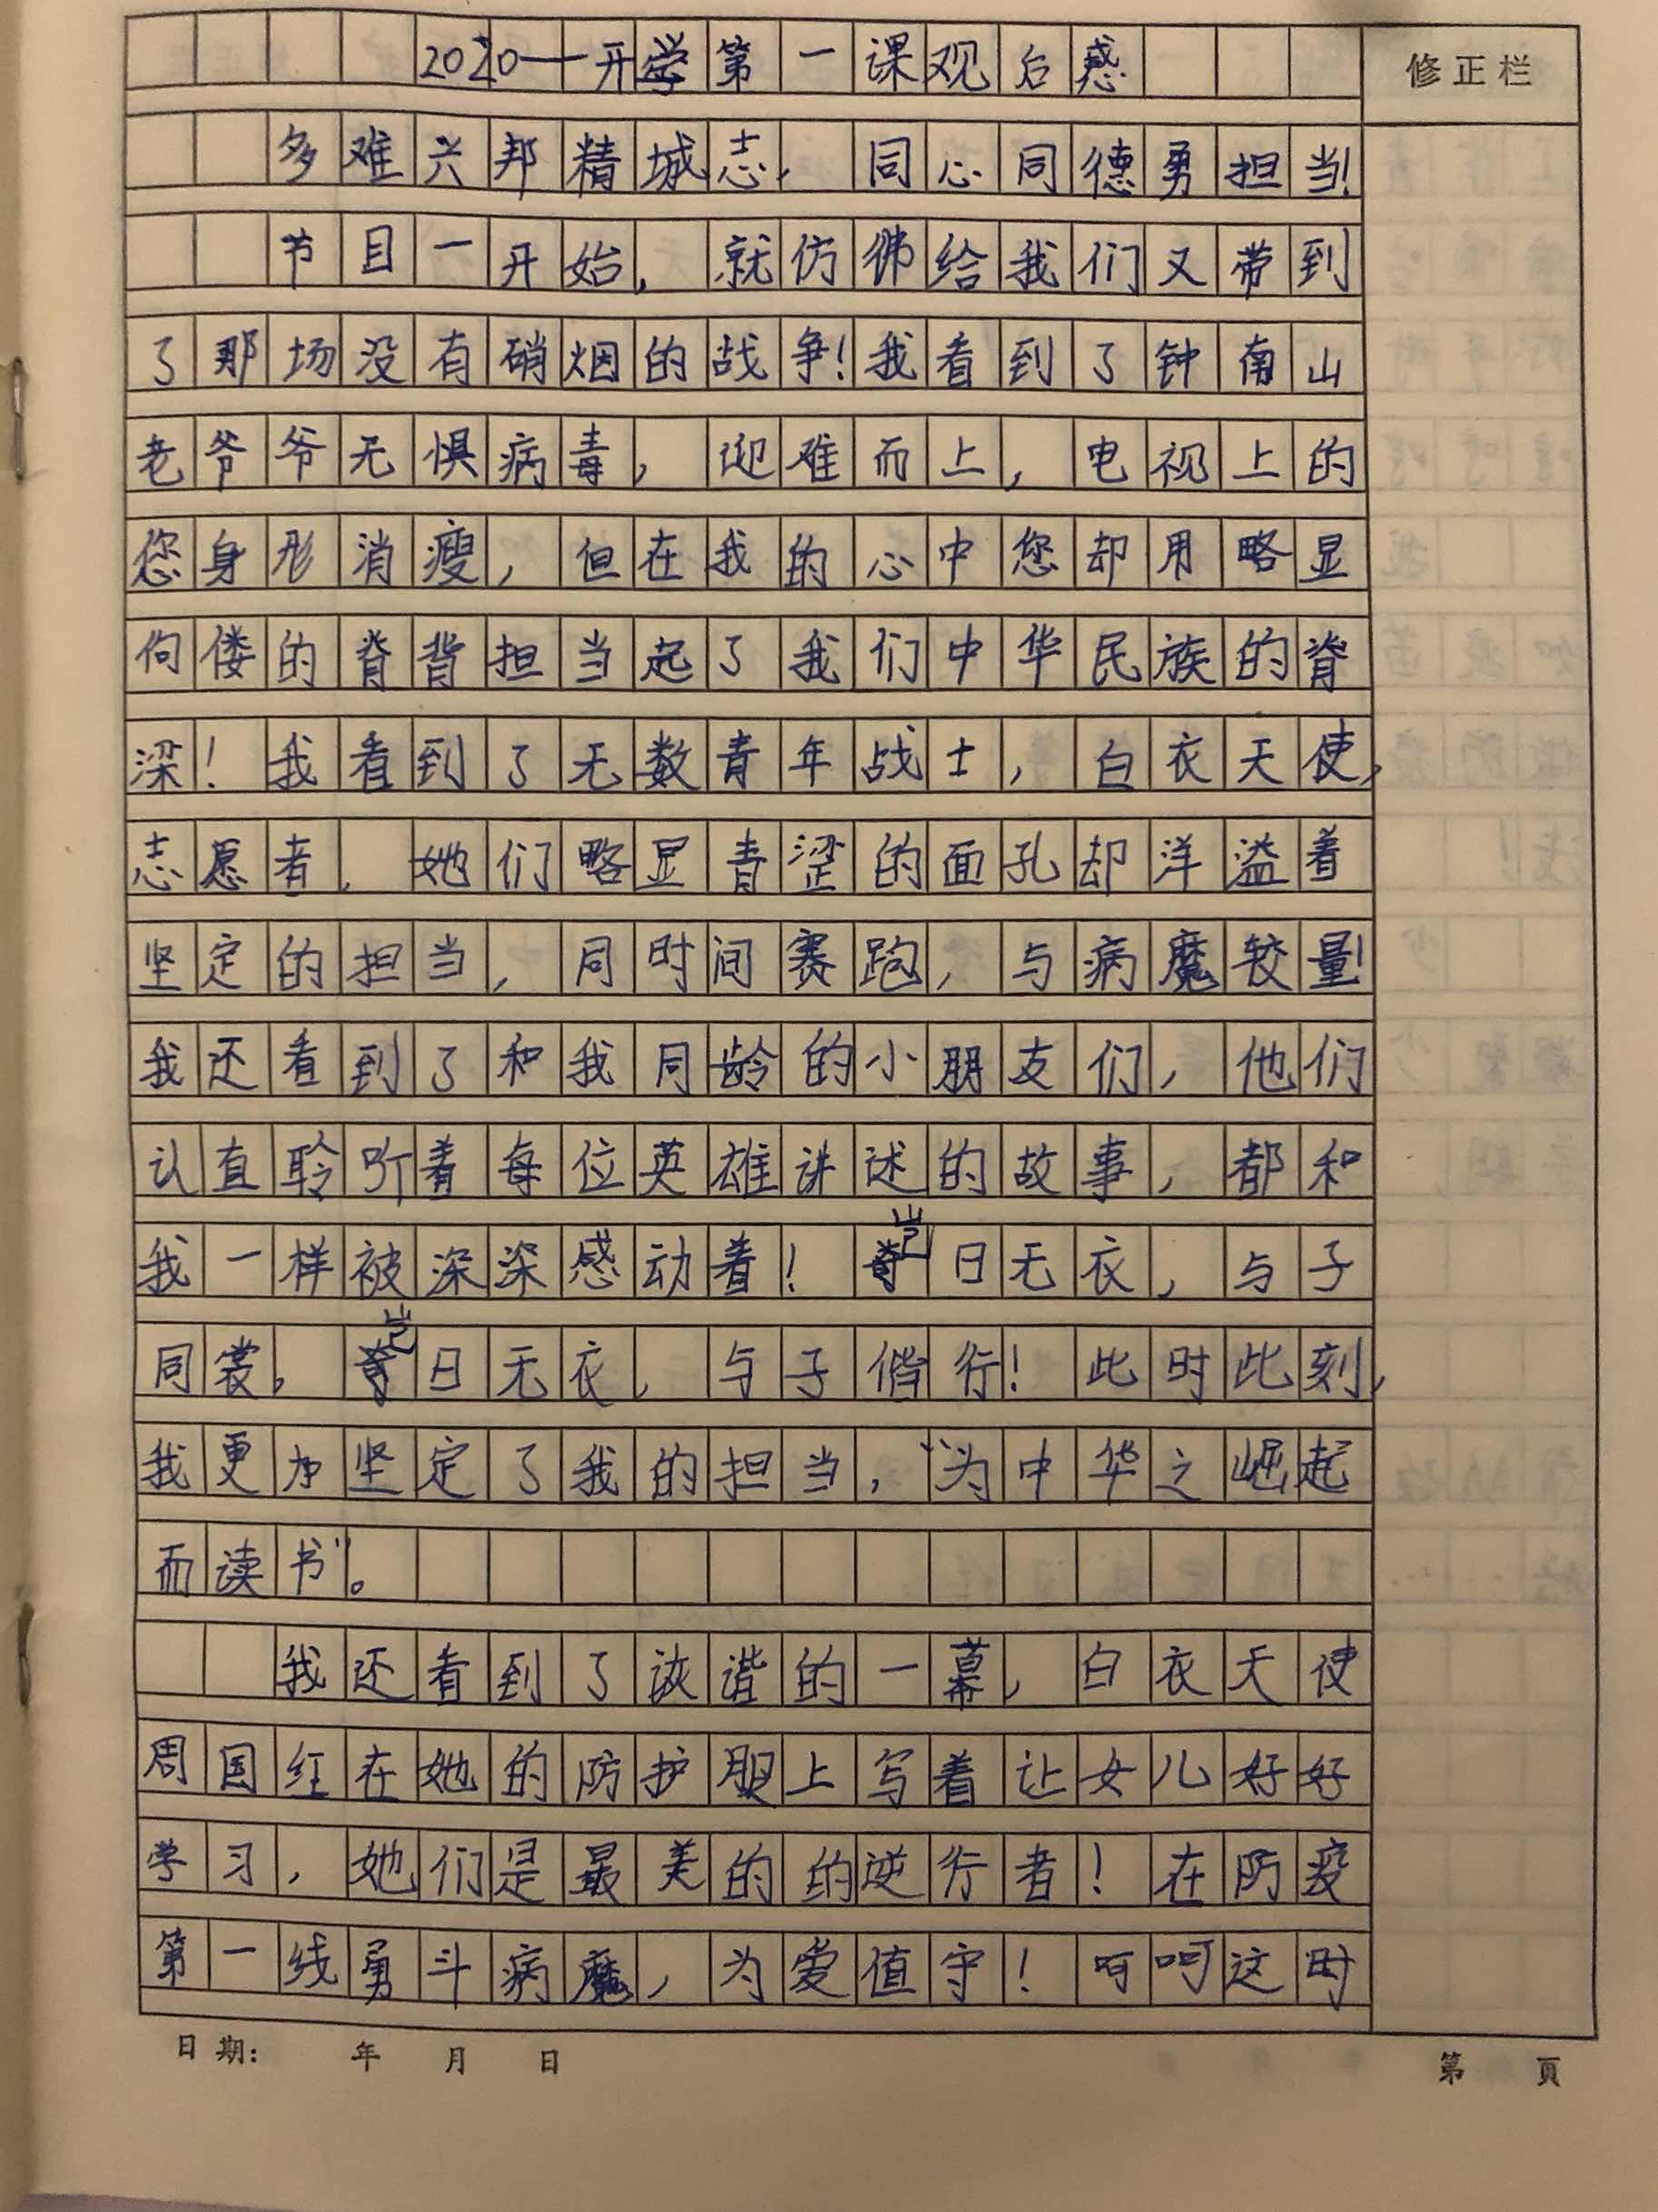 2020一开学第一课观后感
修正栏
多难兴邦精城志，同心同德勇担当！
节目一开始，就仿彿给我们又带到
了那场没有硝烟的战争！我看到了钟南山
老爷爷无惧病毒，迎难而上，电视上的
您身形消瘦，但在我的心中您却用略显
佝偻的脊背担当起了我们中华民族的脊
梁！我看到了无数青年战士，白衣天使，
志愿者，她们略显青涩的面孔却洋溢着
坚定的担当，同时间赛跑，与病魔较量！
我还看到了和我同龄的小朋友们，他们
认真聆听着每位英雄讲述的故事，都和
我一样被深深感动着！岂曰无衣，与子
同裳，岂曰无衣，与子偕行！此时此刻，
我更加坚定了我的担当，“为中华之崛起
而读书”。
我还看到了诙谐的一幕，白衣天使
周国红在她的防护服上写着让女儿好好
学习，她们是最美的的逆行者！在防疫
第一线勇斗病魔，为爱值守！呵呵这时
日期： 年 月 日
第 頁